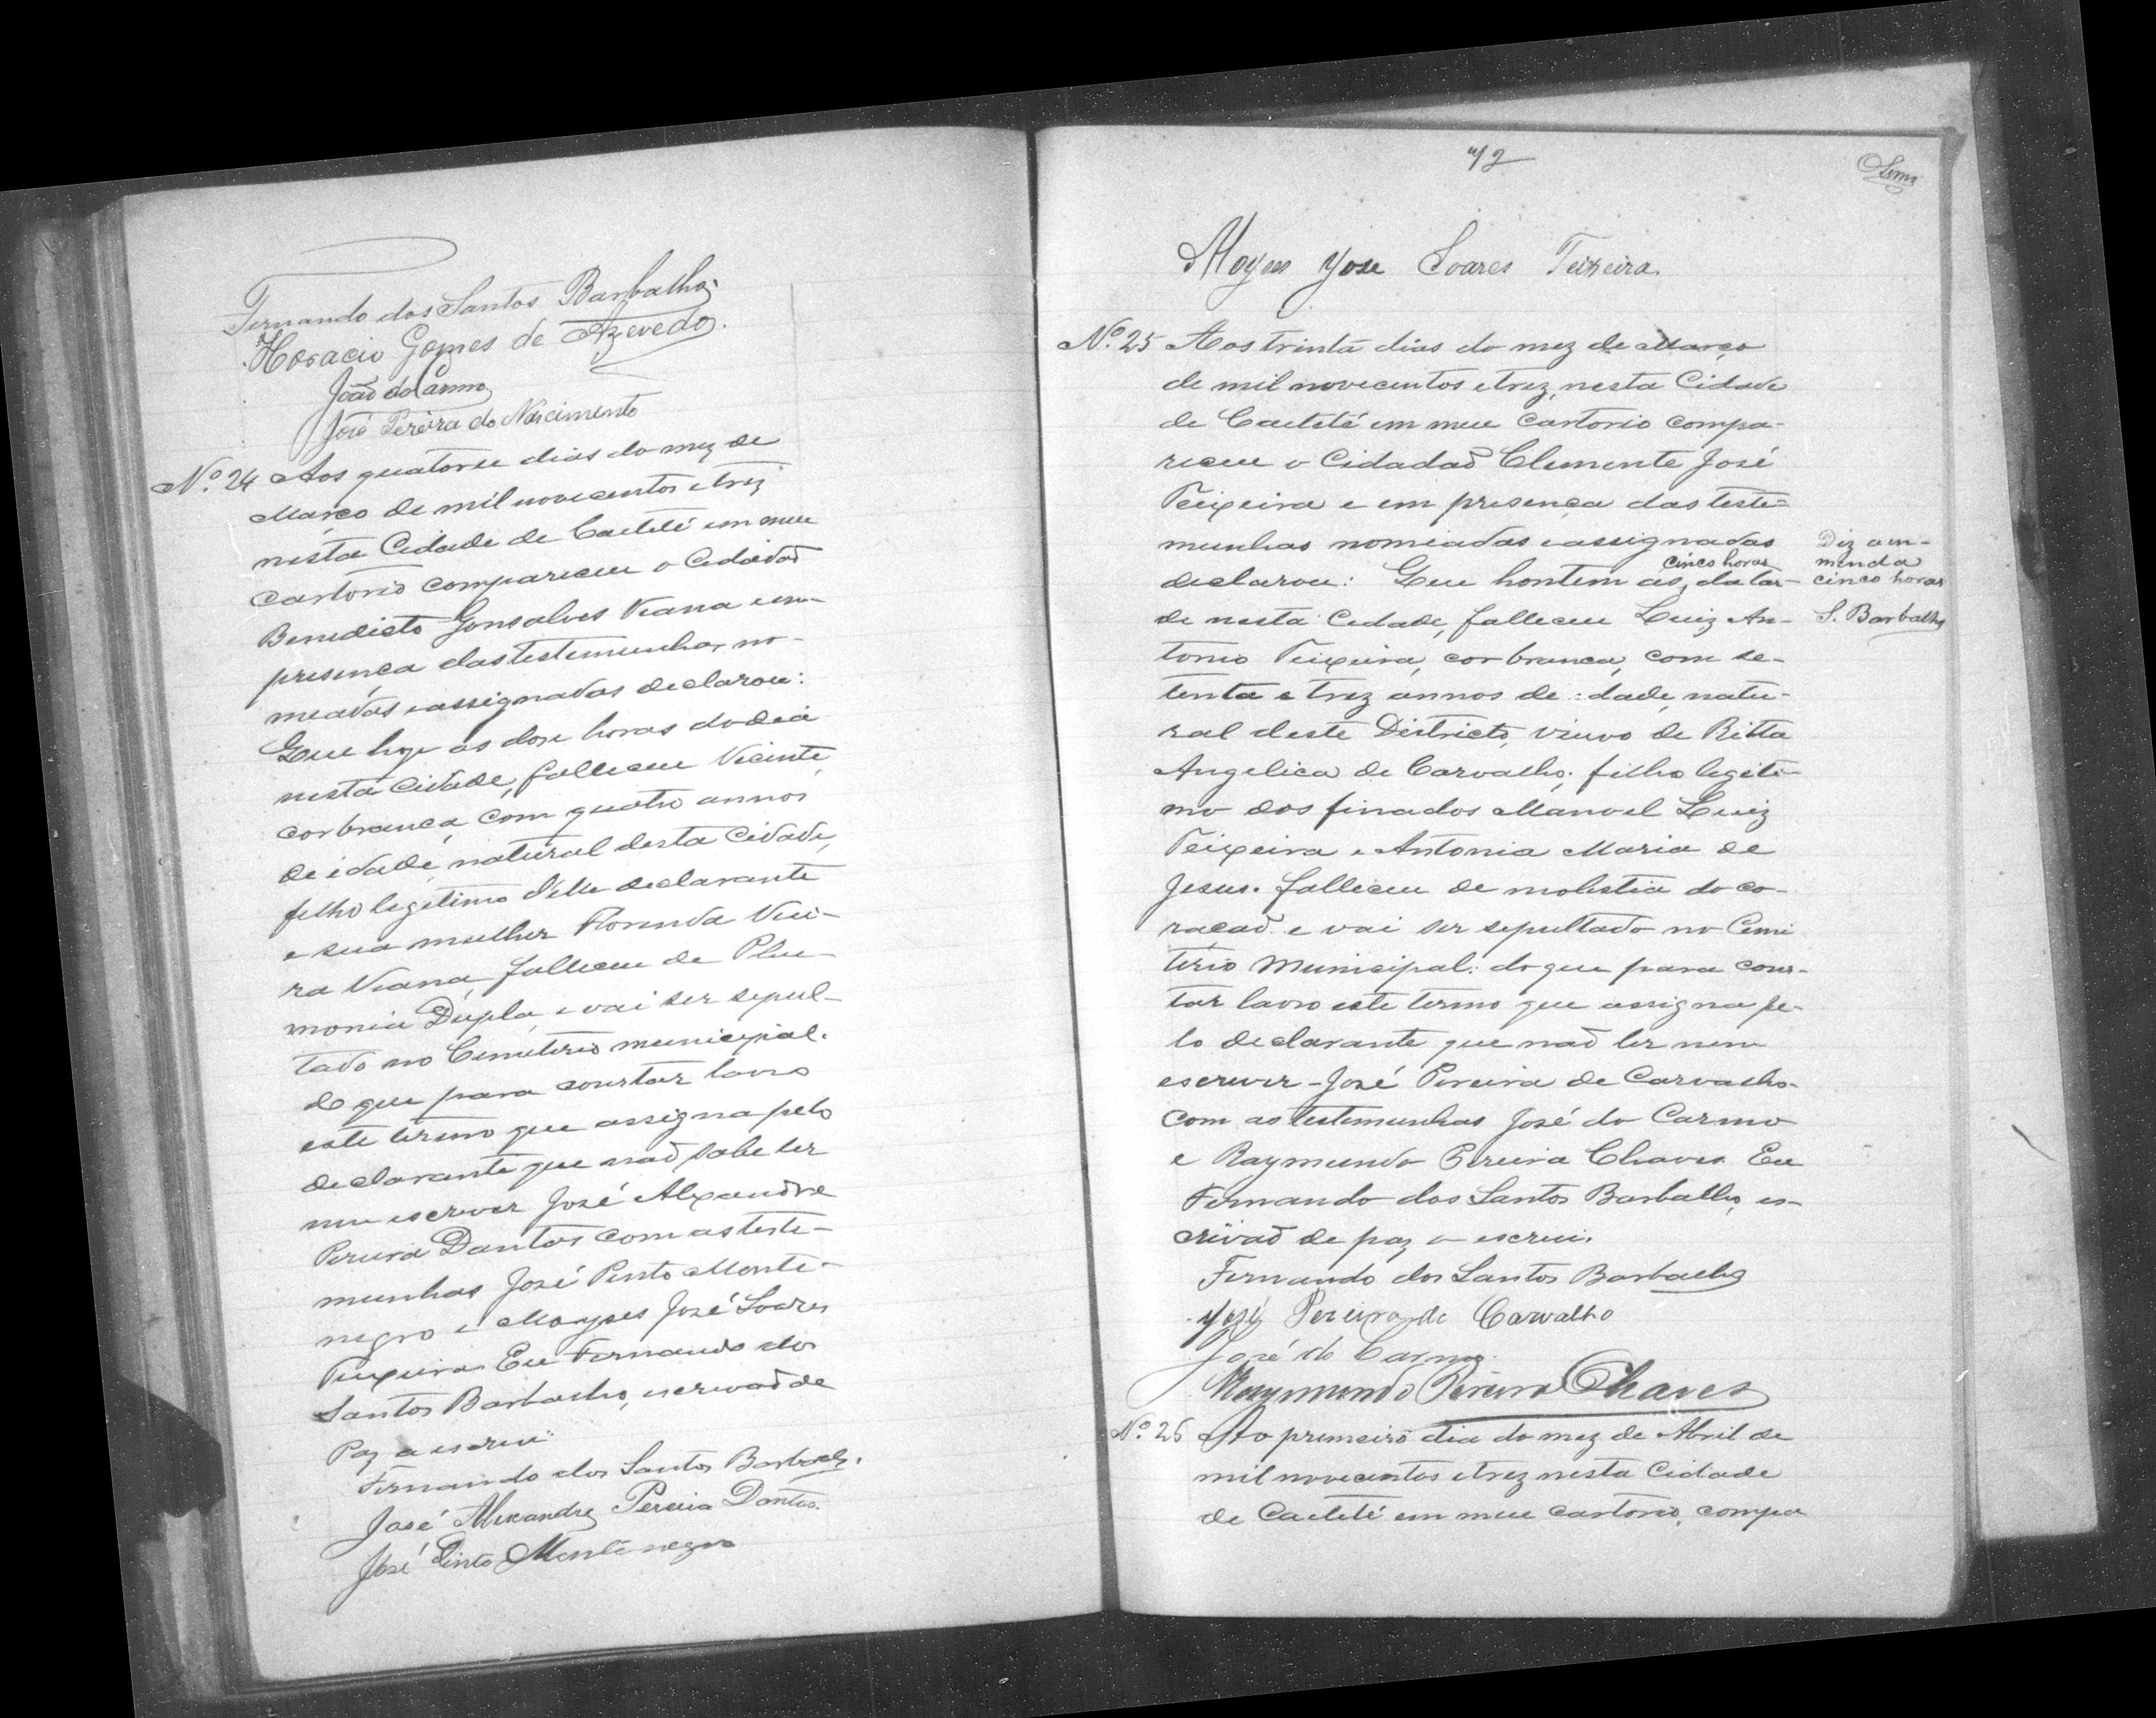 Fernando dos Santos Barbalho.
Horacio Gomes de Azevedo.
João do Carmo
José Pereira do Nascimento
Nº. 24 Aos quatorse dias do mez de
Março de mil novecentos e trez
nesta Cidade de Caeteté em meu
cartorio compareceu o Cidadaõ
Benedicto Gonsalves Viana e em
presença das testemunhas no-
meadas e assignadas declarou:
Que hoje as dose horas do dia
nesta Cidade, falleceu Vicente,
cor branca, com quatro annos
de idade, natural desta Cidade,
filho legitimo d'elle declarante
e sua mulher Florinda Viei-
ra Viana, falleceu de Pleu-
monia Dupla, e vai ser sepul-
tado no Cemiterio municipal.
do que para constar lavro
este termo que assigna pelo
declarante que naõ sabe ler
nem escrever José Alexandre
Pereira Dantas com as teste-
munhas José Pinto Monte-
negro e Moyses José Soares
Teixeira Eu Fernando dos
Santos Barbalho, escrivaõ de
Paz a escrevi.
Fernando dos Santos Barbalho.
José Alexandre Pereira Dantas.
José Pinto Montenegro
72
Moyses José Soares Teixeira.
Nº. 25 Aos trinta dias do mez de Março
de mil novecentos e trez, nesta Cidade
de Caeteté em meu cartorio compa-
receu o Cidadaõ Clemente José
Teixeira e em presença das teste=
munhas nomeadas e assignadas
cinco horas
declarou: Que hontem as, da tar-
de nesta Cidade, falleceu Luiz An-
tonio Teixeira, cor branca, com se-
tenta e trez annos de idade, natu-
ral deste Districto, viuvo de Ritta
Angelica de Carvalho; filho legiti-
mo dos finados Manoel Luiz
Teixeira e Antonia Maria de
Jesus. falleceu de molestia do co-
raçaõ e vai ser sepultado no Cemi
terio Municipal: do que para cons-
tar lavro este termo que assigna pe-
lo declarante que naõ ler nem
escrever - José Pereira de Carvalho
com as testemunhas José do Carmo
e Raymundo Pereira Chaves. Eu
Fernando dos Santos Barbalho, es-
crivaõ de paz o escrevi.
Fernando dos Santos Barbalho
José Pereira de Carvalho
José do Carmo.
Raymundo Pereira Chaves
Diz a em-
menda
cinco horas
S. Barbalho
Nº. 26 Ao primeiro dia do mez de Abril de
mil novecentos e trez nesta Cidade
de Caeteté em meu cartorio, compa